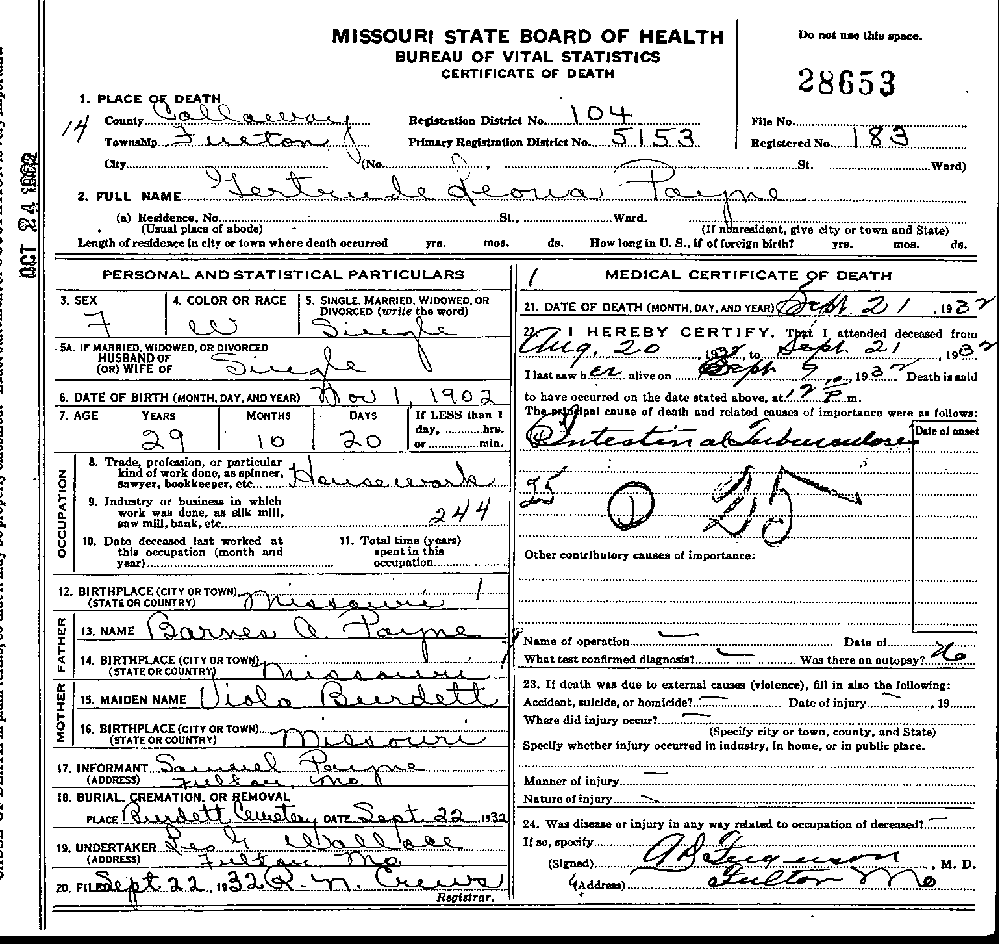 MISSOURI STATE BOARD OF HEALTH
BUREAU OF VITAL STATISTICS
CERTIFICATE OF DEATH
Do not use this space.
28653
1. PLACE OF DEATH
County Callaway
14
Township Fulton
City (No. , St. Ward)
Registration District No. 104
Primary Registration District No. 5153
File No.
Registered No. 183
2. FULL NAME Gertrude Leona Payne
(a) Residence, No. St., Ward.
(Usual place of abode) (If nonresident, give city or town and State)
Length of residence in city or town where death occurred yrs. mos. ds. How long in U. S., if of foreign birth? yrs. mos. ds.
OCT 24 1932
PERSONAL AND STATISTICAL PARTICULARS
3. SEX
F
4. COLOR OR RACE
W
5. SINGLE, MARRIED, WIDOWED, OR
DIVORCED (write the word)
Single
5A. IF MARRIED, WIDOWED, OR DIVORCED
HUSBAND OF
(OR) WIFE OF Single
6. DATE OF BIRTH (MONTH, DAY, AND YEAR) Nov 1, 1902
7. AGE YEARS MONTHS DAYS If LESS than 1
day, hrs.
or min.
29 10 20
OCCUPATION
8. Trade, profession, or particular
kind of work done, as spinner,
sawyer, bookkeeper, etc. Housework
9. Industry or business in which
work was done, as silk mill,
saw mill, bank, etc. 244
10. Date deceased last worked at
this occupation (month and
year)
11. Total time (years)
spent in this
occupation
12. BIRTHPLACE (CITY OR TOWN)
(STATE OR COUNTRY) Missouri 1
FATHER
13. NAME Barnes A. Payne
14. BIRTHPLACE (CITY OR TOWN)
(STATE OR COUNTRY) Missouri
MOTHER
15. MAIDEN NAME Viola Burdett
16. BIRTHPLACE (CITY OR TOWN)
(STATE OR COUNTRY) Missouri
17. INFORMANT Samuel Payne
(ADDRESS) Fulton, Mo
18. BURIAL, CREMATION, OR REMOVAL
PLACE Burdett Cemetery DATE Sept 22 1932
19. UNDERTAKER Wallace
(ADDRESS) Fulton Mo
20. FILED Sept 22, 1932 R. N. Crews
Registrar.
1
MEDICAL CERTIFICATE OF DEATH
21. DATE OF DEATH (MONTH, DAY, AND YEAR) Sept 21, 1932
22. I HEREBY CERTIFY, That I attended deceased from
Aug. 20, 1932, to Sept. 21, 1932
I last saw her alive on Sept 1932 Death is said
to have occurred on the date stated above, at m.
The principal cause of death and related causes of importance were as follows:
Date of onset
Intestinal Tuberculosis
25 1 25
Other contributory causes of importance:
Name of operation Date of
What test confirmed diagnosis? Was there an autopsy? No
23. If death was due to external causes (violence), fill in also the following:
Accident, suicide, or homicide? Date of injury , 19
Where did injury occur?
(Specify city or town, county, and State)
Specify whether injury occurred in industry, in home, or in public place.
Manner of injury
Nature of injury
24. Was disease or injury in any way related to occupation of deceased?
If so, specify
(Signed) Ferguson, M. D.
(Address) Fulton Mo